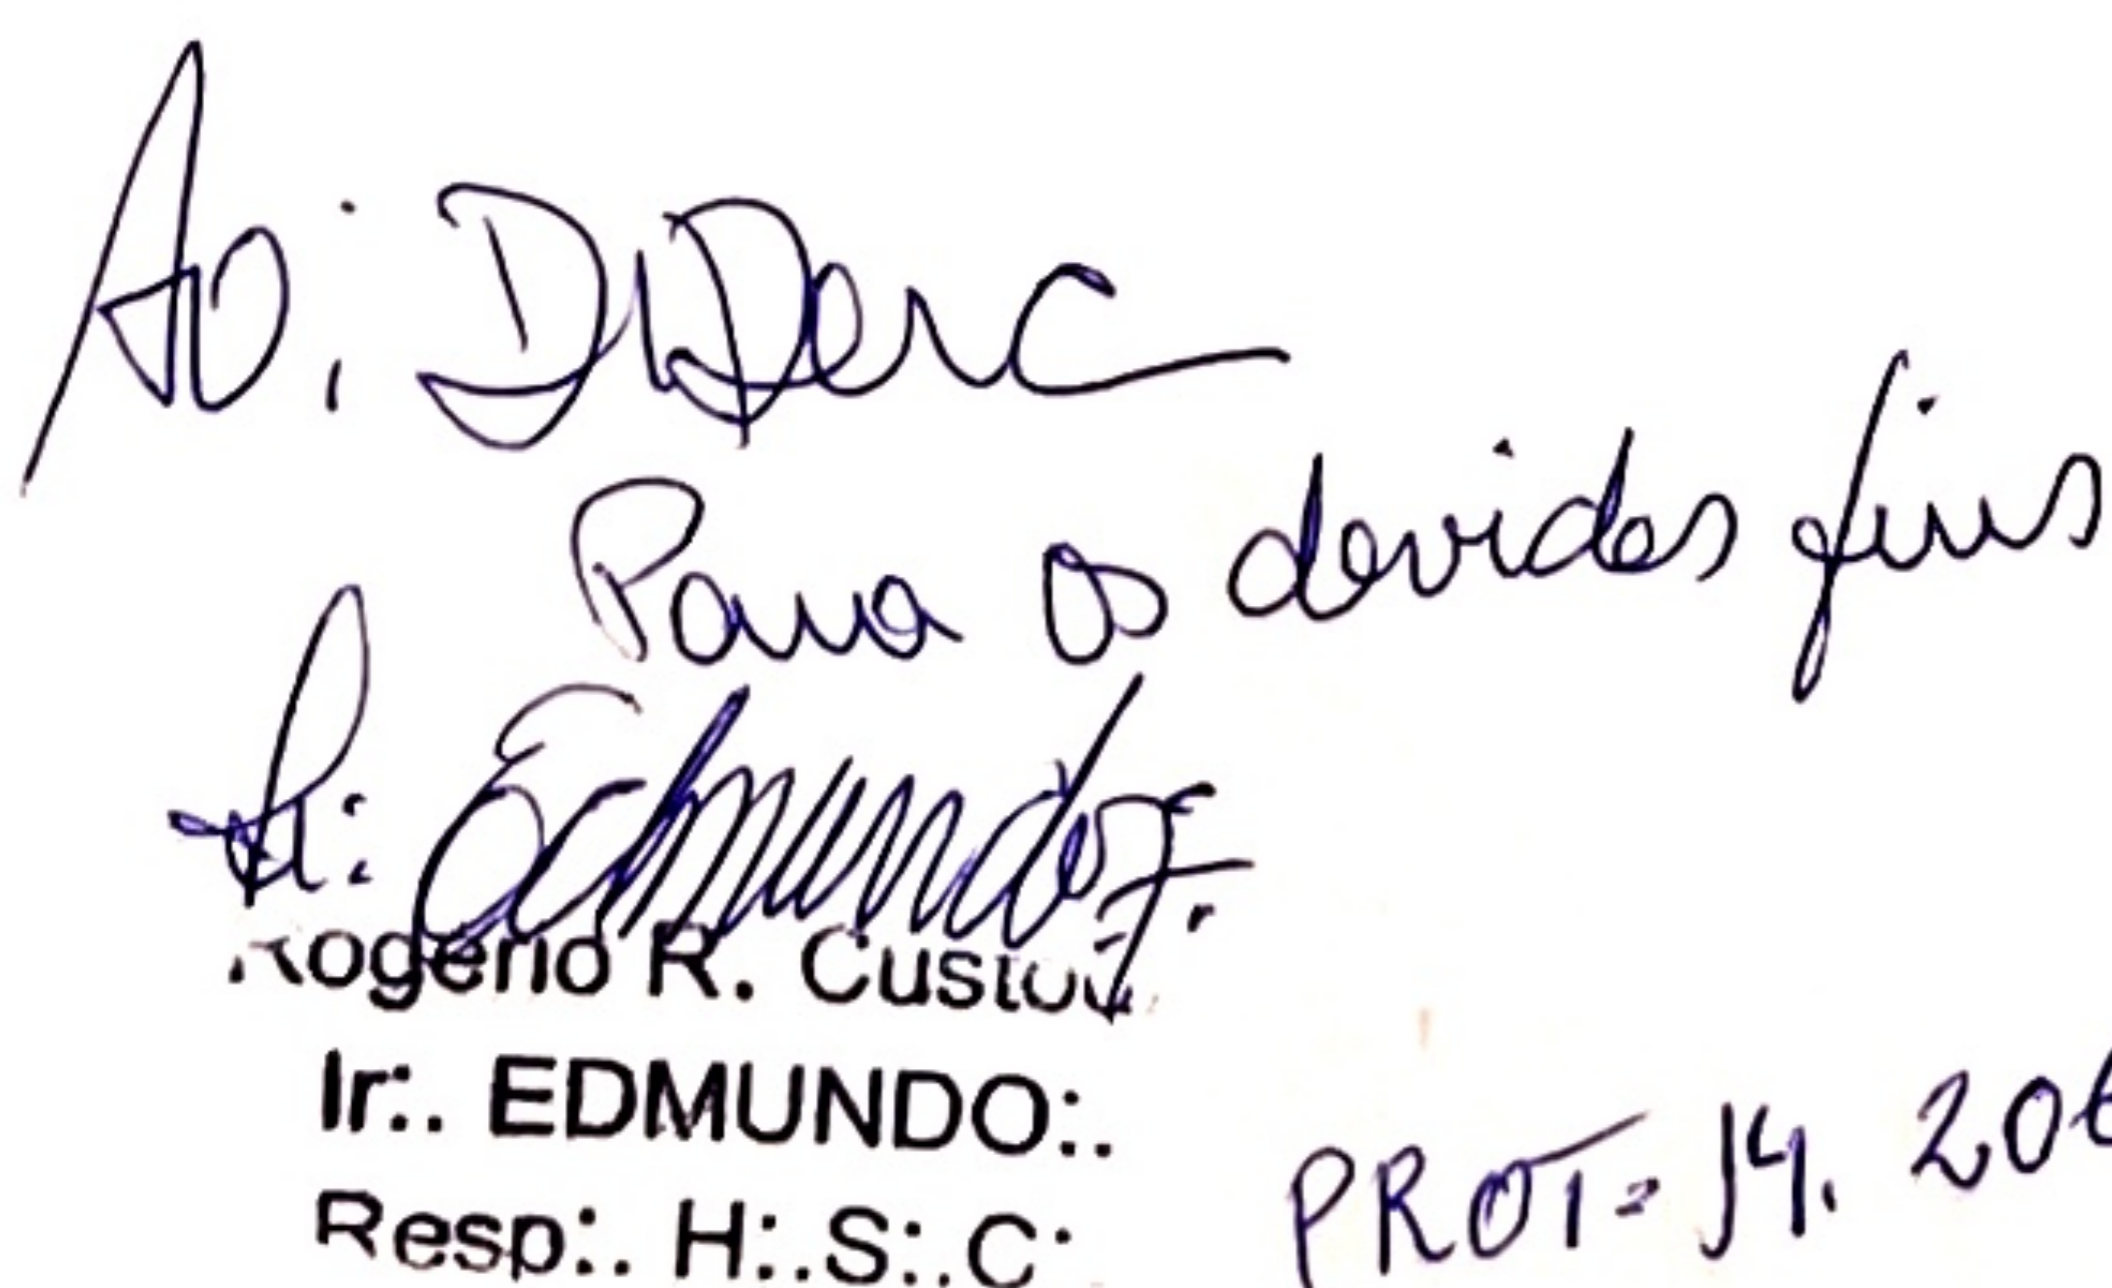 Ao: DiDerc
Para os devidos fins
Ir: Edmundo F.
Rogerio R. Custod
Ir:. EDMUNDO:.
Resp:. H:.S:.C:.
PROT= 14. 206